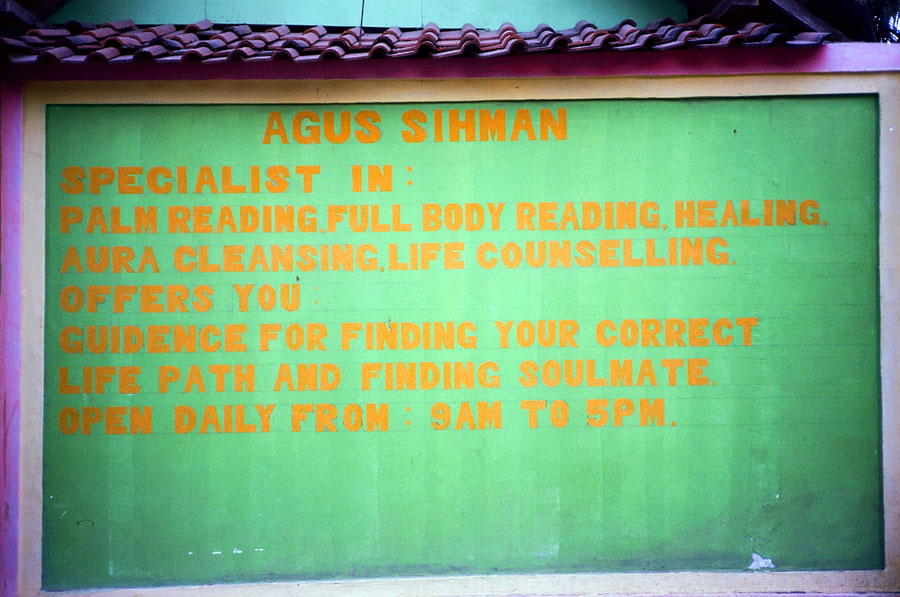 AGUS SIHMAN
SPECIALIST IN :
PALM READING,FULL BODY READING, HEALING,
AURA CLEANSING,LIFE COUNSELLING.
OFFERS YOU :
GUIDENCE FOR FINDING YOUR CORRECT
LIFE PATH AND FINDING SOULMATE.
OPEN DAILY FROM : 9AM TO 5PM.